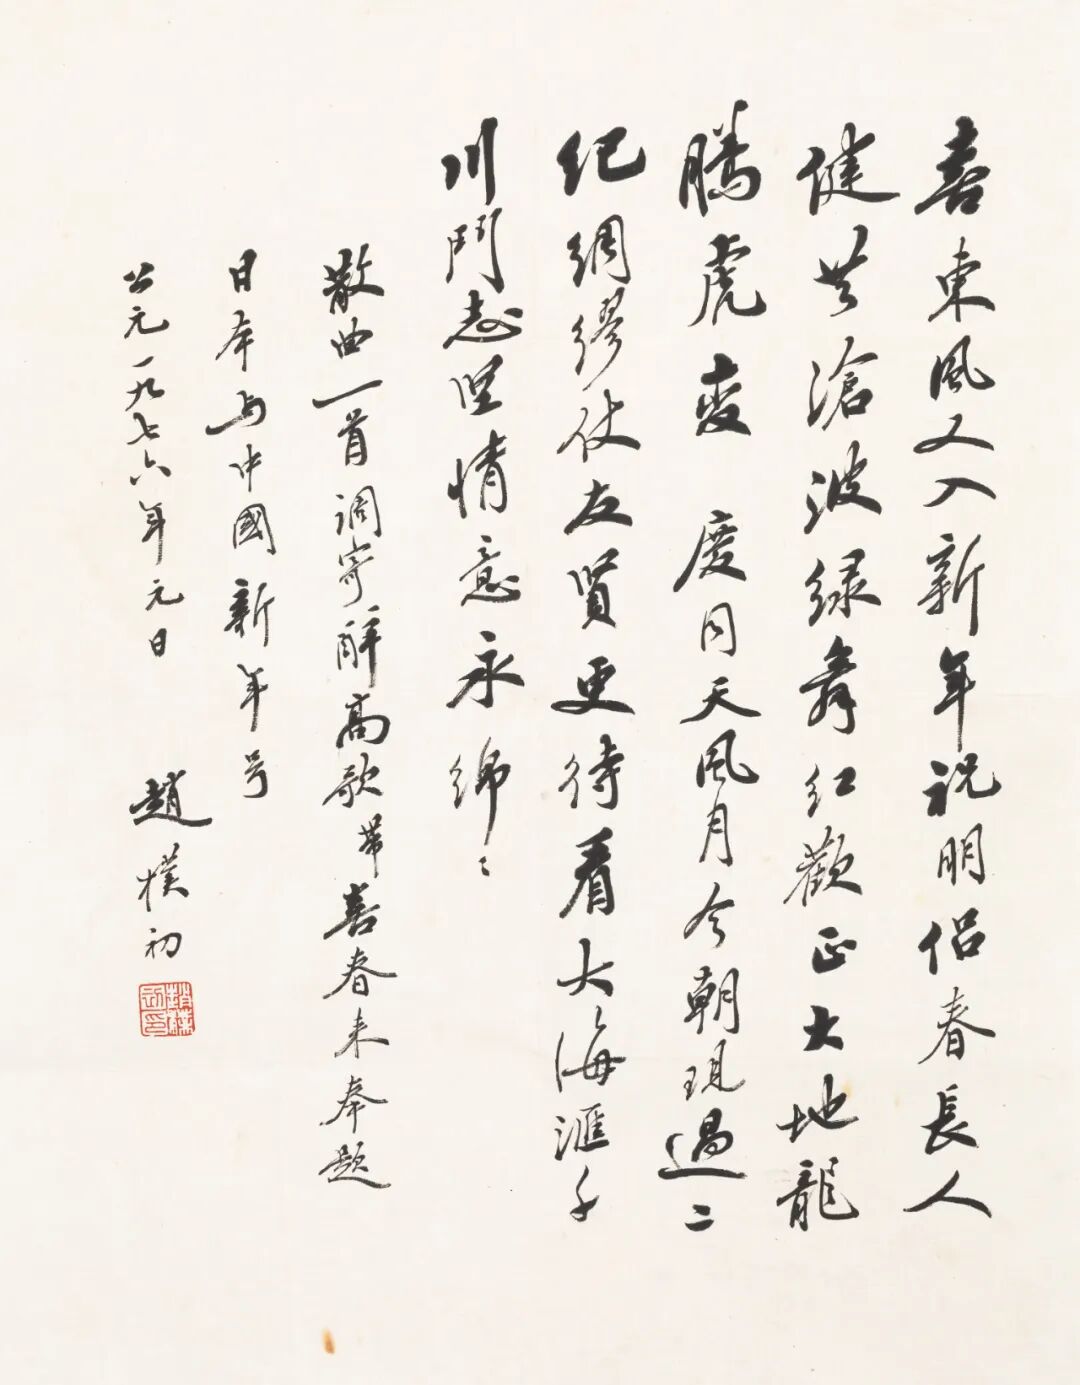 喜東風又入新年祝朋侶春長人
健共滄波绿舞红歡正大地龍
騰虎变 度同天風月今朝現過二
纪绸缪仗友賢更待看大海滙千
川鬥志坚情意永绵〻
散曲一首調寄醉高歌帶喜春来奉題
日本与中國新年号
公元一九七六年元日 趙樸初
趙樸初印